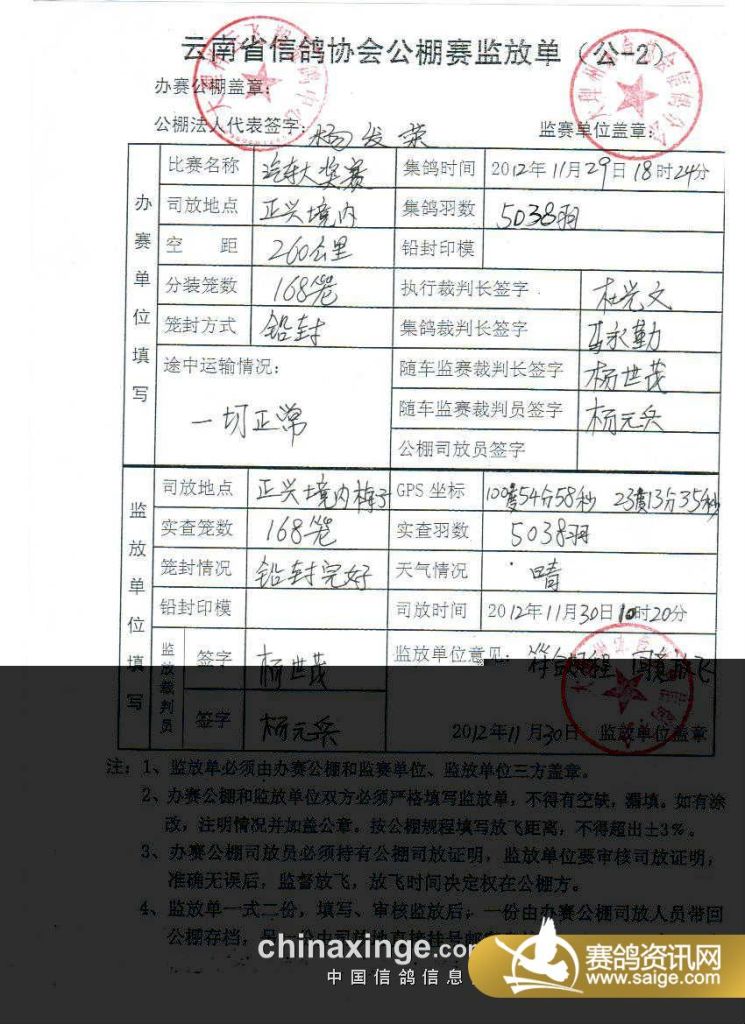 云南省信鸽协会公棚赛监放单（公-2）
办赛公棚盖章：
公棚法人代表签字：杨发荣 监赛单位盖章：
办赛单位填写
比赛名称 汽车大奖赛 集鸽时间 2012年11月29日18时24分
司放地点 正兴境内 集鸽羽数 5038羽
空距 260公里 铅封印模
分装笼数 168笼 执行裁判长签字 杜光文
笼封方式 铅封 集鸽裁判长签字 永勤
途中运输情况： 随车监赛裁判长签字 杨世茂
一切正常 随车监赛裁判员签字 杨元兵
公棚司放员签字
监放单位填写
司放地点 正兴境内 GPS 坐标 100度54分58秒 23度13分35秒
实查笼数 168笼 实查羽数 5038羽
笼封情况 铅封完好 天气情况 晴
铅封印模 司放时间 2012年11月30日10时20分
监放裁判员 签字 杨世茂 监放单位意见： 符合规程 同意放飞
签字 杨元兵 2012年11月30日 监放单位盖章
注：1、监放单必须由办赛公棚和监赛单位、监放单位三方盖章。
2、办赛公棚和监放单位双方必须严格填写监放单，不得有空缺，漏填。如有涂
改，注明情况并加盖公章。按公棚规程填写放飞距离，不得超出±3%。
3、办赛公棚司放员必须持有公棚司放证明，监放单位要审核司放证明，
准确无误后，监督放飞，放飞时间决定权在公棚方。
4、监放单一式二份，填写、审核监放后，一份由办赛公棚司放人员带回
公棚存档，另一份由司放地直接挂号邮寄
chinaxinge.co
中国信鸽信息
赛鸽资讯网
www.saige.com